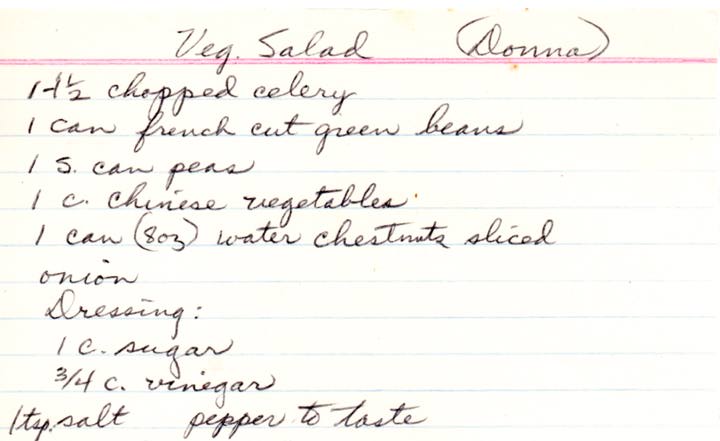 Veg. Salad (Donna)
1-1½ chopped celery
1 can french cut green beans
1 s. can peas
1 c. chinese vegetables
1 can (8oz) water chestnuts sliced
onion
Dressing:
1 c. sugar
3/4 c. vinegar
1 tsp. salt pepper to taste